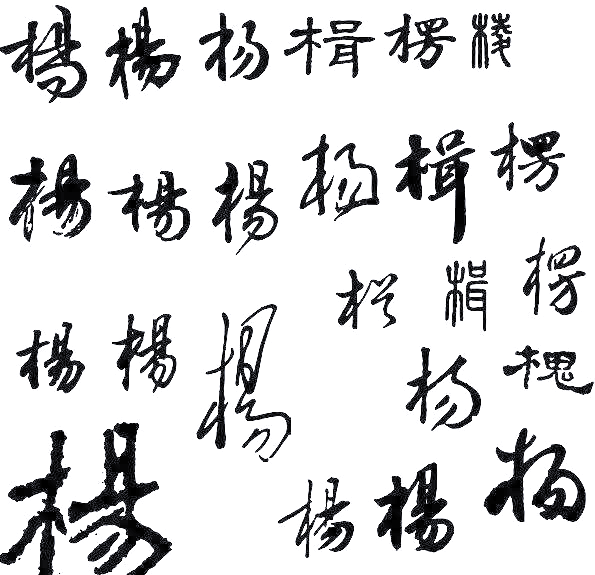 楊 楊 杨 楫 楞 棱
楊 楊 楊 杨 楫 楞
楫 楞
楊 楊 楊 杨 槐
楊 楊 楊 杨